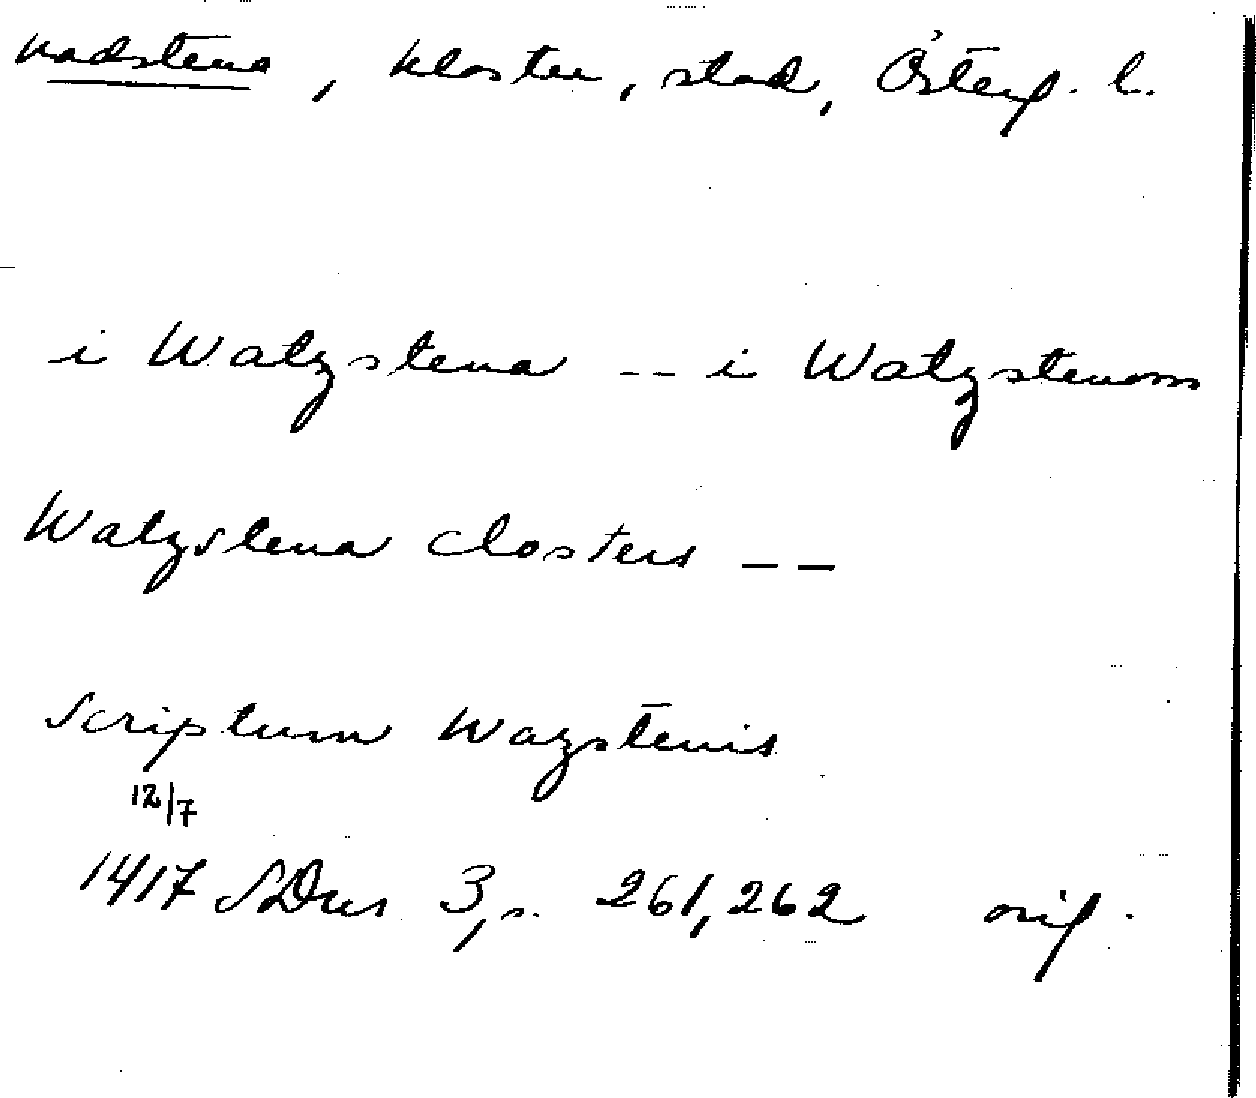 Vadstena, kloster, stad, Österg. l.
i Watzstena -- i Watzstenom
Watzstena closters --
Scriptum Wazstenis
12/7
1417 SDns 3, s. 261, 262 orig.